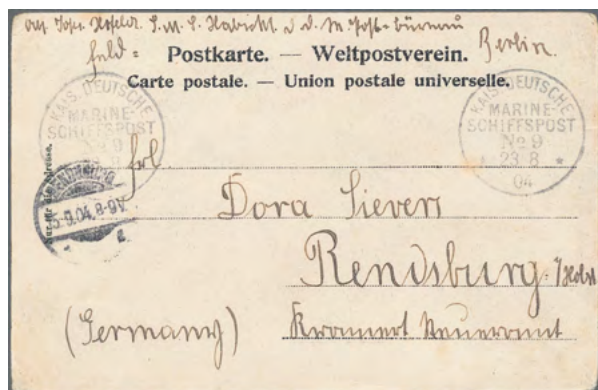 S. M. S. Habicht d. d. M. Post-büreau
Berlin.
Feld =
Postkarte. — Weltpostverein.
Carte postale. — Union postale universelle.
KAIS. DEUTSCHE
MARINE-
SCHIFFSPOST
No 9
23 8
KAIS. DEUTSCHE
MARINE-
SCHIFFSPOST
No 9
23 8 *
04
Nur für die Adresse.
RENDSBURG
5.9.04.8-9V.
Frl.
Dora Sievers
Rendsburg. /Holst
(Germany)